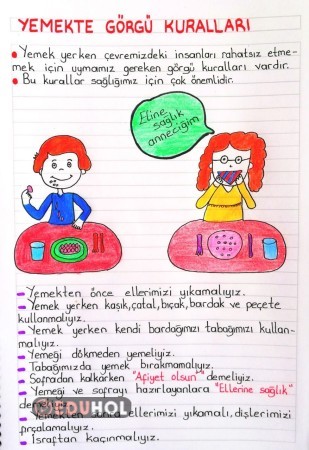 YEMEKTE GÖRGÜ KURALLARI
• Yemek yerken çevremizdeki insanları rahatsız etme-
mek için uymamız gereken görgü kuralları vardır.
• Bu kurallar sağlığımız için çok önemlidir.
Eline
sağlık
anneciğim
- Yemekten önce ellerimizi yıkamalıyız.
- Yemek yerken kaşık, çatal, bıçak, bardak ve peçete
kullanmalıyız.
- Yemek yerken kendi bardağımızı tabağımızı kullan-
malıyız.
- Yemeği dökmeden yemeliyiz.
- Tabağımızda yemek bırakmamalıyız.
- Sofradan kalkarken "Afiyet olsun" demeliyiz.
- Yemeği ve sofrayı hazırlayanlara "Ellerine sağlık"
demeliyiz.
EDUHOL
- Yemekten sonra ellerimizi yıkamalı, dişlerimizi
fırçalamalıyız.
- İsraftan kaçınmalıyız.